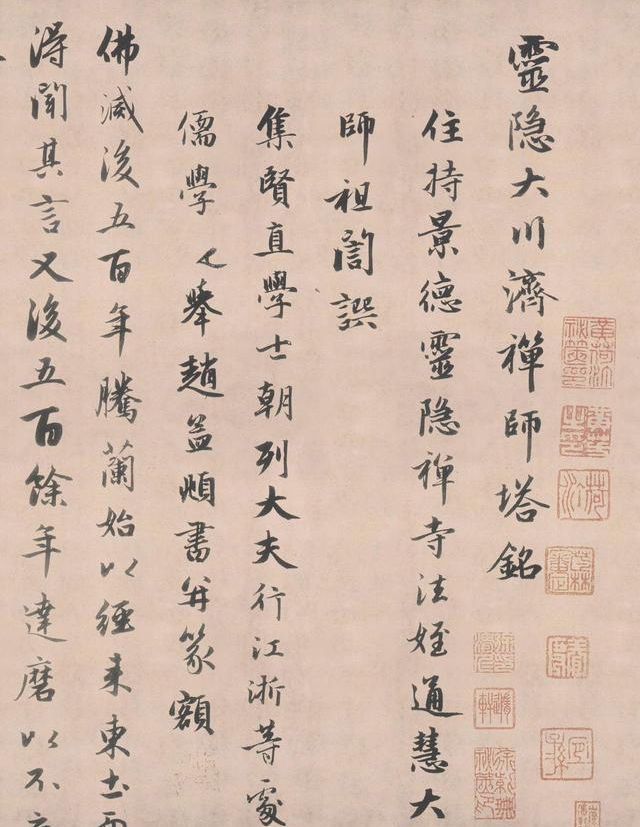 靈隐大川濟禪師塔銘
住持景德靈隐禪寺法姪通慧大
師祖誾譔
集賢直學士朝列大夫行江浙等處
儒學舉趙孟頫書并篆額
佛滅後五百年騰蘭始以經来東土
得聞其言又後五百餘年達磨以不